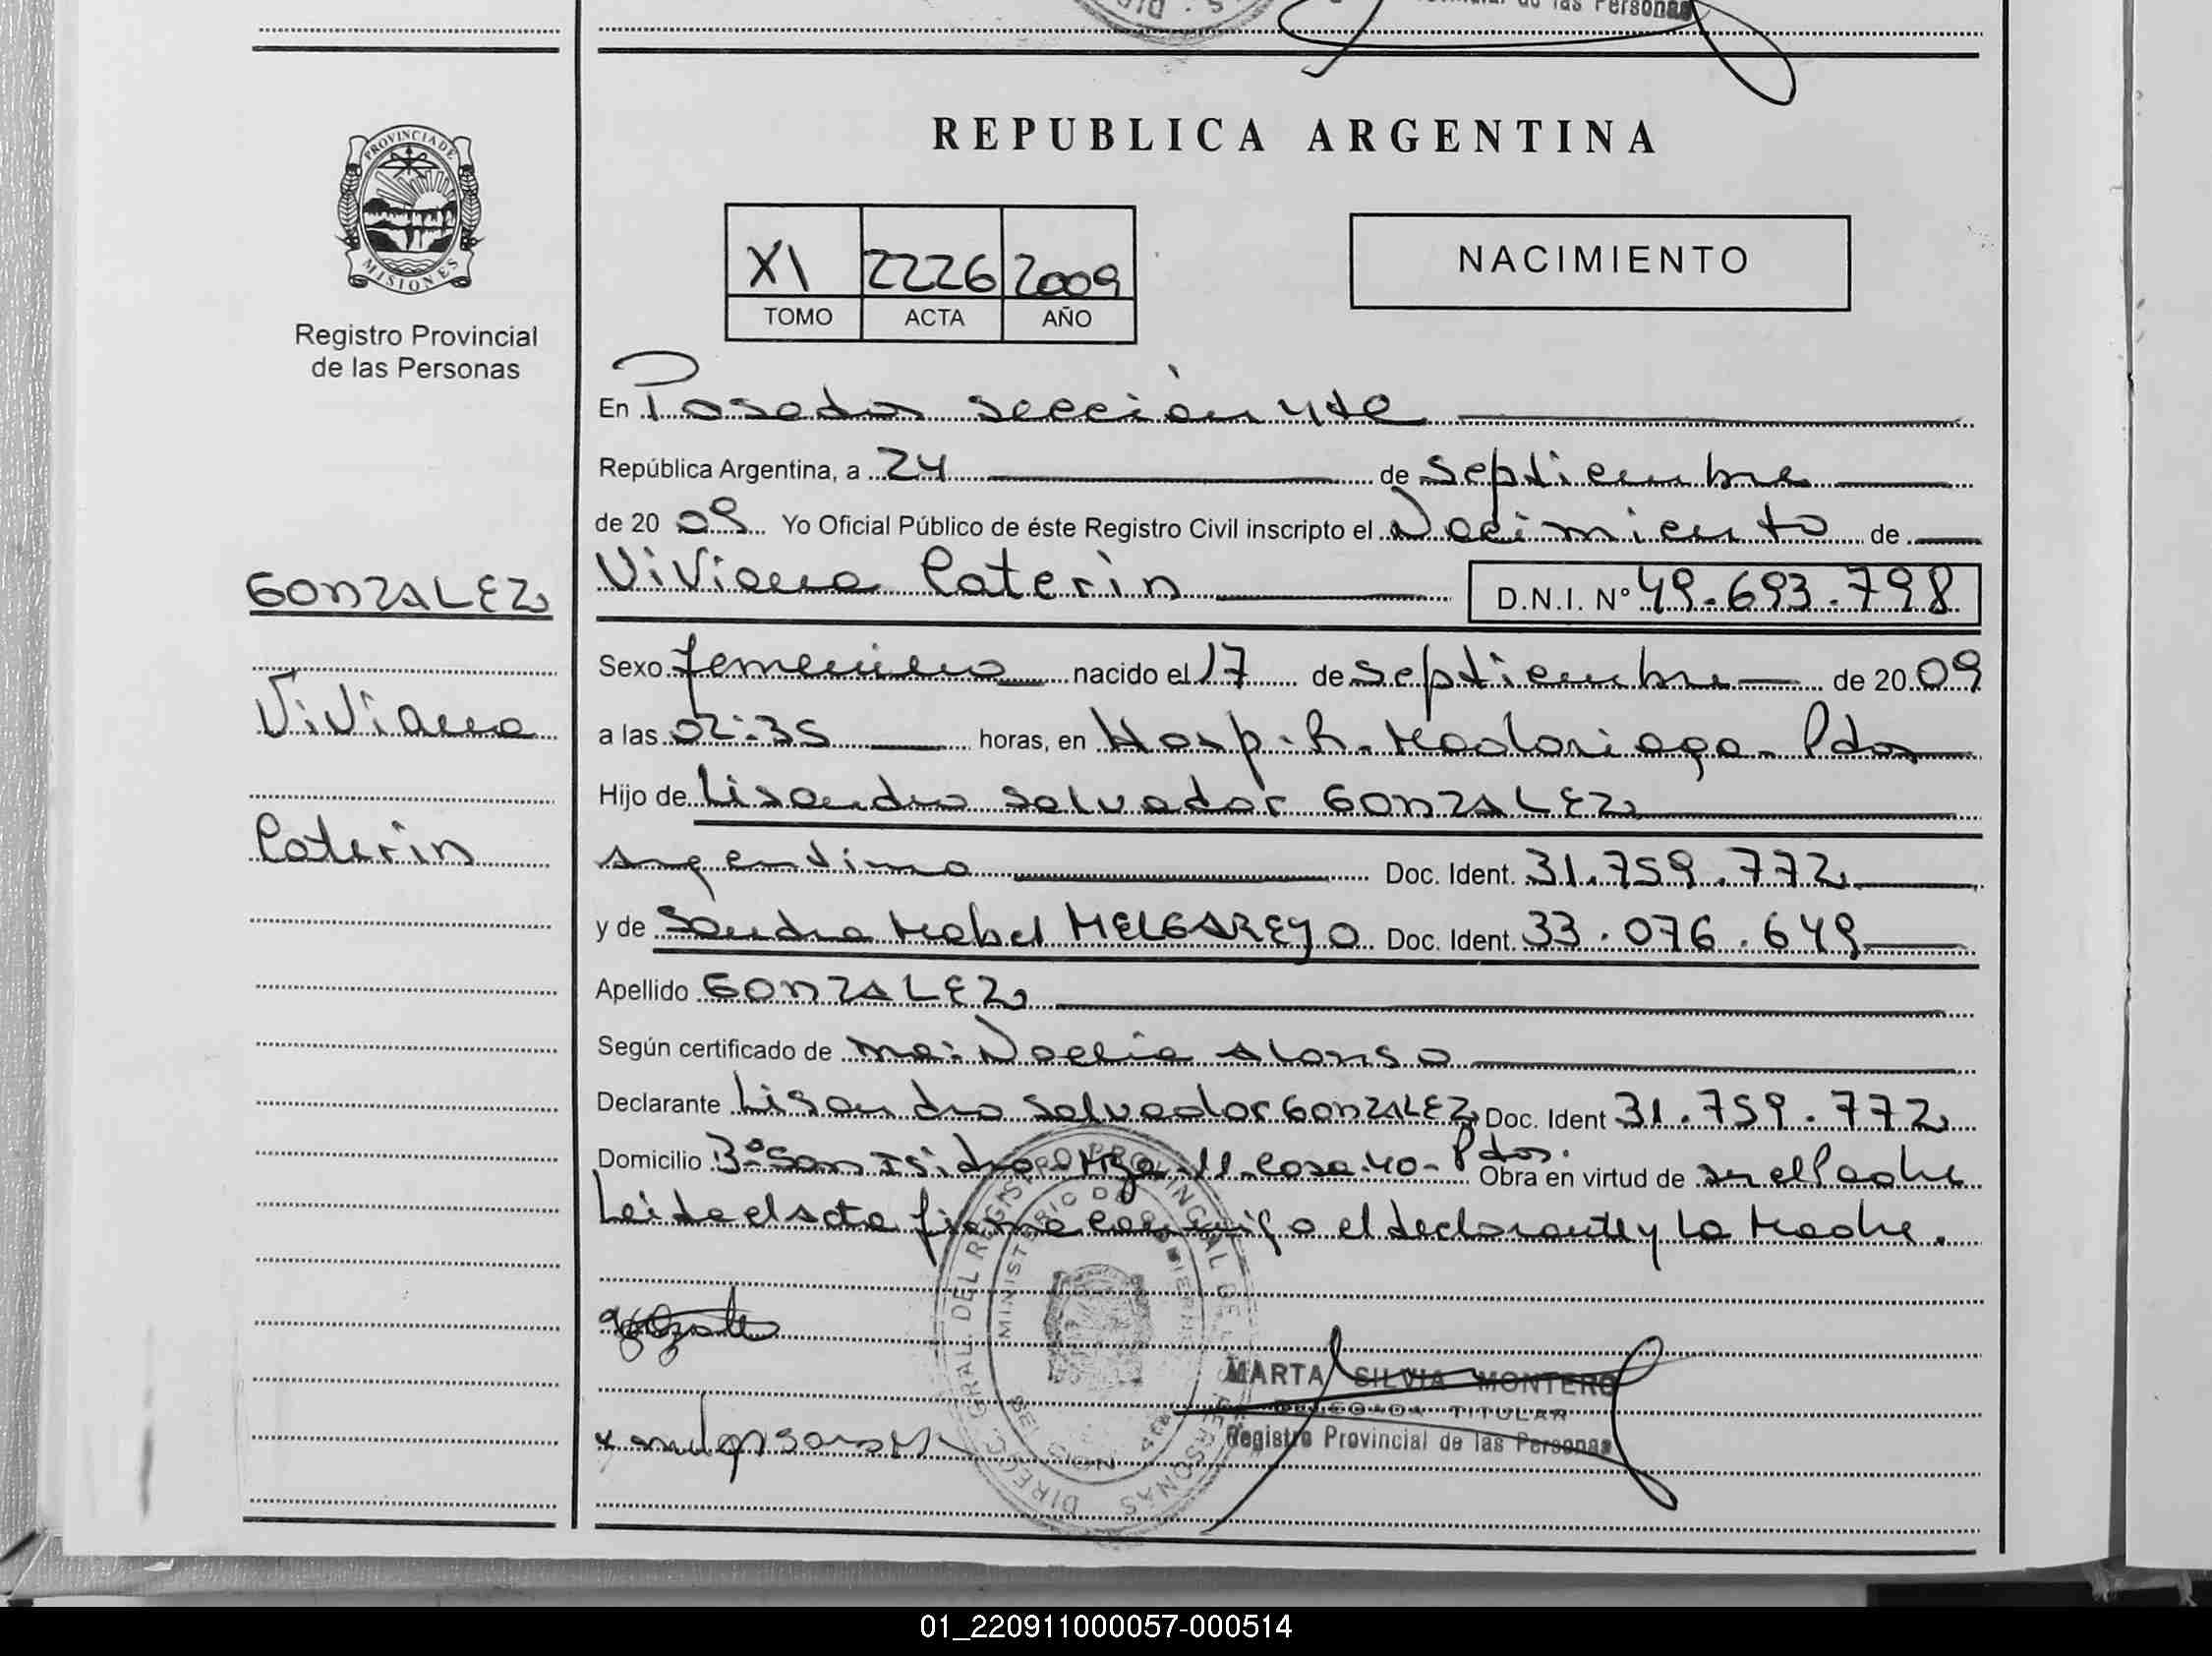 de las Personas
REPUBLICA ARGENTINA
PROVINCIA DE
MISIONES
Registro Provincial
de las Personas
XI 2226 2009
TOMO ACTA AÑO
NACIMIENTO
En Posadas sección 4ta
República Argentina, a 24 de Septiembre
de 20 09 Yo Oficial Público de éste Registro Civil inscripto el Nacimiento de
GONZALEZ
Viviana
Caterin
Viviana Caterin D.N.I. Nº 49.693.798
Sexo femenino nacido el 17 de septiembre de 20 09
a las 02:35 horas, en Hosp. R. Madariaga - Pdas
Hijo de Lisandro Salvador GONZALEZ
argentino Doc. Ident. 31.759.772
y de Sandra Mabel MELGAREJO Doc. Ident. 33.076.649
Apellido GONZALEZ
Según certificado de Ma: Noelia Alonso
Declarante Lisandro Salvador GONZALEZ Doc. Ident 31.759.772
Domicilio Bº San Isidro - Mza - 11 - Casa 40 - Pdas. Obra en virtud de ser el Padre
Leida el acta firma conmigo el declarante y la Madre.
DIRECC. GRAL. DEL REGISTRO PROVINCIAL DE LAS PERSONAS
MINISTERIO DE GOBIERNO
MISIONES
MARTA SILVIA MONTERO
DELEGADA TITULAR
Registro Provincial de las Personas
01_220911000057-000514